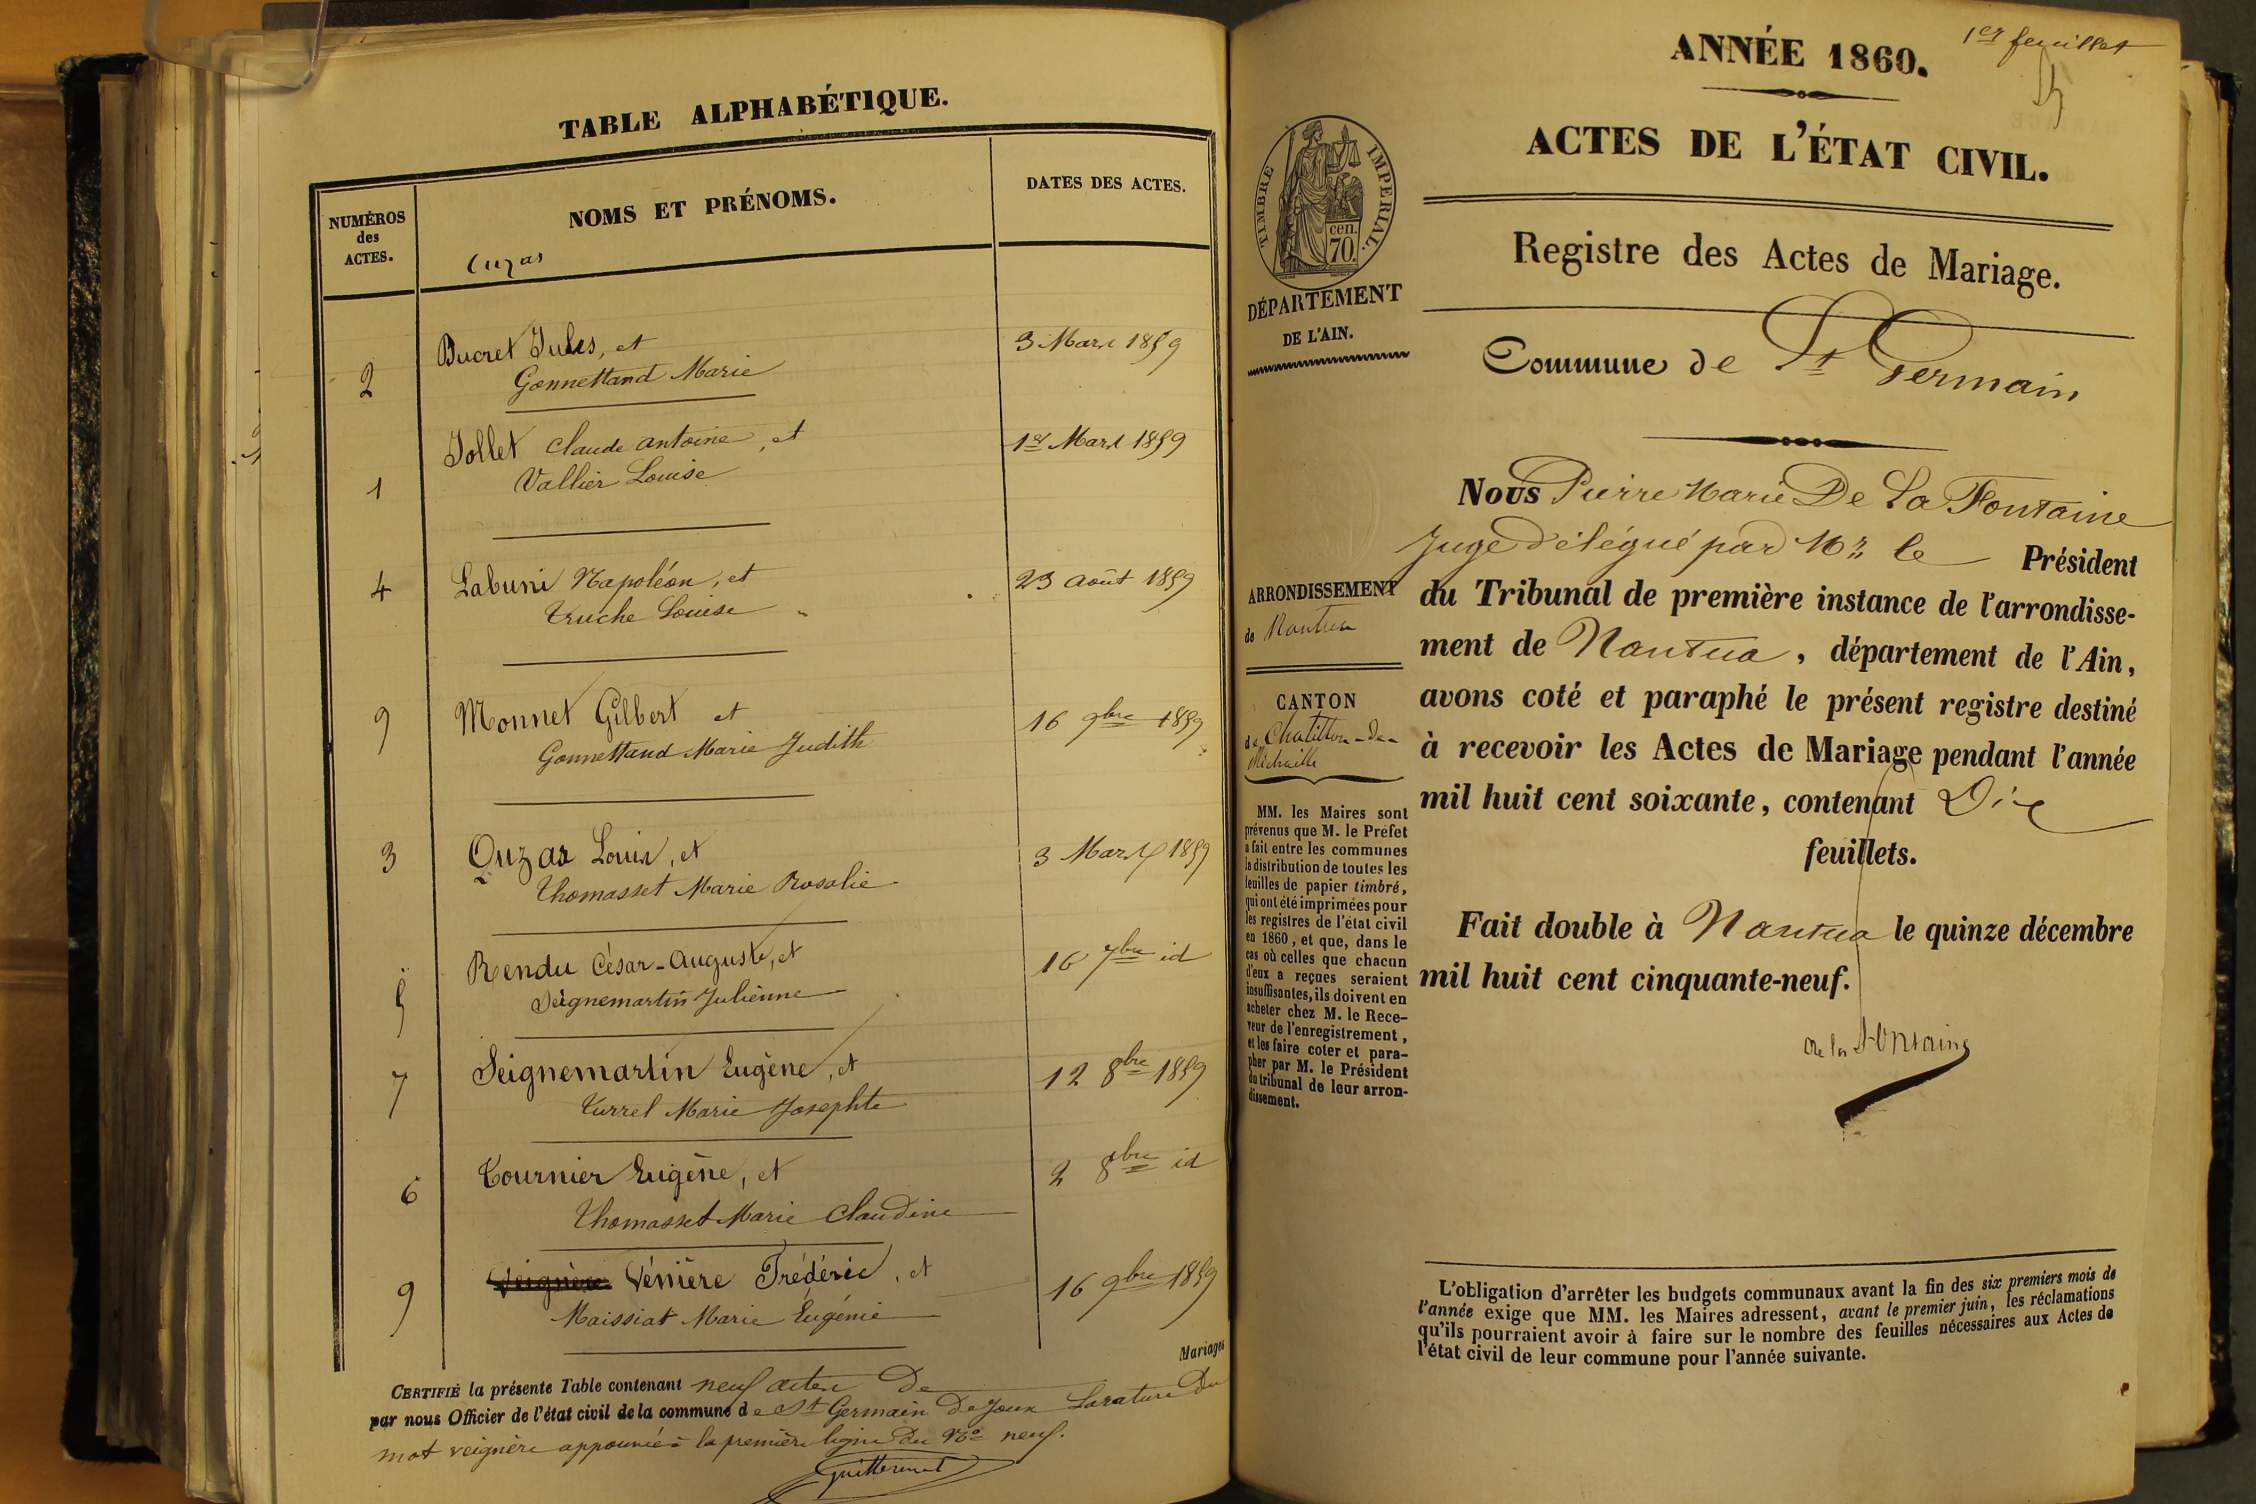 TABLE ALPHABÉTIQUE.
NUMÉROS
des
ACTES.
NOMS ET PRÉNOMS.
DATES DES ACTES.
Cuzas
2 Bucret Jules, et 3 Mars 1859
Gonnettand Marie
1 Jollet Claude antoine, et 1er Mars 1859
Vallier Louise
4 Labuni Napoléon, et 23 août 1859
Truche Louise
9 Monnet Gilbert et 16 9bre 1859
Gonnettand Marie Judith
3 Ouzas Louis, et 3 Mars 1859
Thomasset Marie Rosalie
5 Rendu César-Auguste, et 16 7bre id
Seignemartin Julienne
7 Seignemartin Eugène, et 12 8bre 1859
Turrel Marie Josephte
6 Tournier Eugène, et 2 8bre id
Thomasset Marie Claudine
9 Veignère Vénière Frédéric, et 16 9bre 1859
Maissiat Marie Eugénie
Mariages
CERTIFIÉ la présente Table contenant neuf actes de
par nous Officier de l'état civil de la commune de St Germain De Joux La rature du
mot veignère à la première ligne du No neuf.
ANNÉE 1860.
1er feuillet
ACTES DE L'ÉTAT CIVIL.
TIMBRE IMPERIAL.
cen.
70.
DÉPARTEMENT
DE L'AIN.
Registre des Actes de Mariage.
Commune de St Germain
Nous Pierre Marie De La Fontaine
Juge délégué par Mr. le Président
du Tribunal de première instance de l'arrondisse-
ment de Nantua, département de l'Ain,
avons coté et paraphé le présent registre destiné
à recevoir les Actes de Mariage pendant l'année
mil huit cent soixante, contenant Dix
feuillets.
Fait double à Nantua le quinze décembre
mil huit cent cinquante-neuf.
de la Fontaine
ARRONDISSEMENT
de Nantua
CANTON
de Chatillon-de-
Michaille
MM. les Maires sont
prévenus que M. le Préfet
a fait entre les communes
la distribution de toutes les
feuilles de papier timbré,
qui ont été imprimées pour
les registres de l'état civil
en 1860, et que, dans le
cas où celles que chacun
d'eux a reçues seraient
insuffisantes, ils doivent en
acheter chez M. le Rece-
veur de l'enregistrement,
et les faire coter et para-
pher par M. le Président
du tribunal de leur arron-
dissement.
L'obligation d'arrêter les budgets communaux avant la fin des six premiers mois de
l'année exige que MM. les Maires adressent, avant le premier juin, les réclamations
qu'ils pourraient avoir à faire sur le nombre des feuilles nécessaires aux Actes de
l'état civil de leur commune pour l'année suivante.